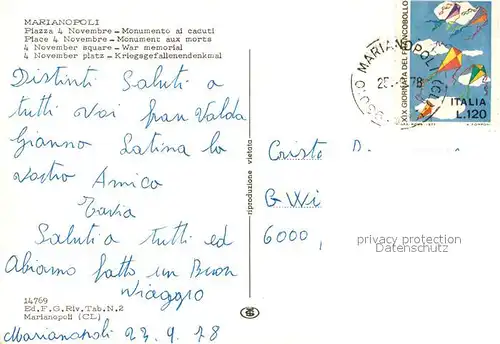 MARIANOPOLI
Piazza 4 Novembre - Monumento ai caduti
Place 4 Novembre - Monument aux morts
4 November square - War memorial
4 November platz - Kriegsgefallenendenkmal
Distinti Saluti a
tutti voi Gran Valda
Gianno Latina lo
vostro Amico
Tavia
Saluti a tutti ed
Abiamo fatto un Buon
Viaggio
14769
Ed. F. G. Riv. Tab. N. 2
Marianopoli (CL)
Marianopoli 23 . 9 . 78
riproduzione vietata
XIX GIORNATA DEL FRANCOBOLLO
ITALIA
L.120
MARIANOPOLI
78
Cristo D.
G Wi
6000,
privacy protection
Datenschutz